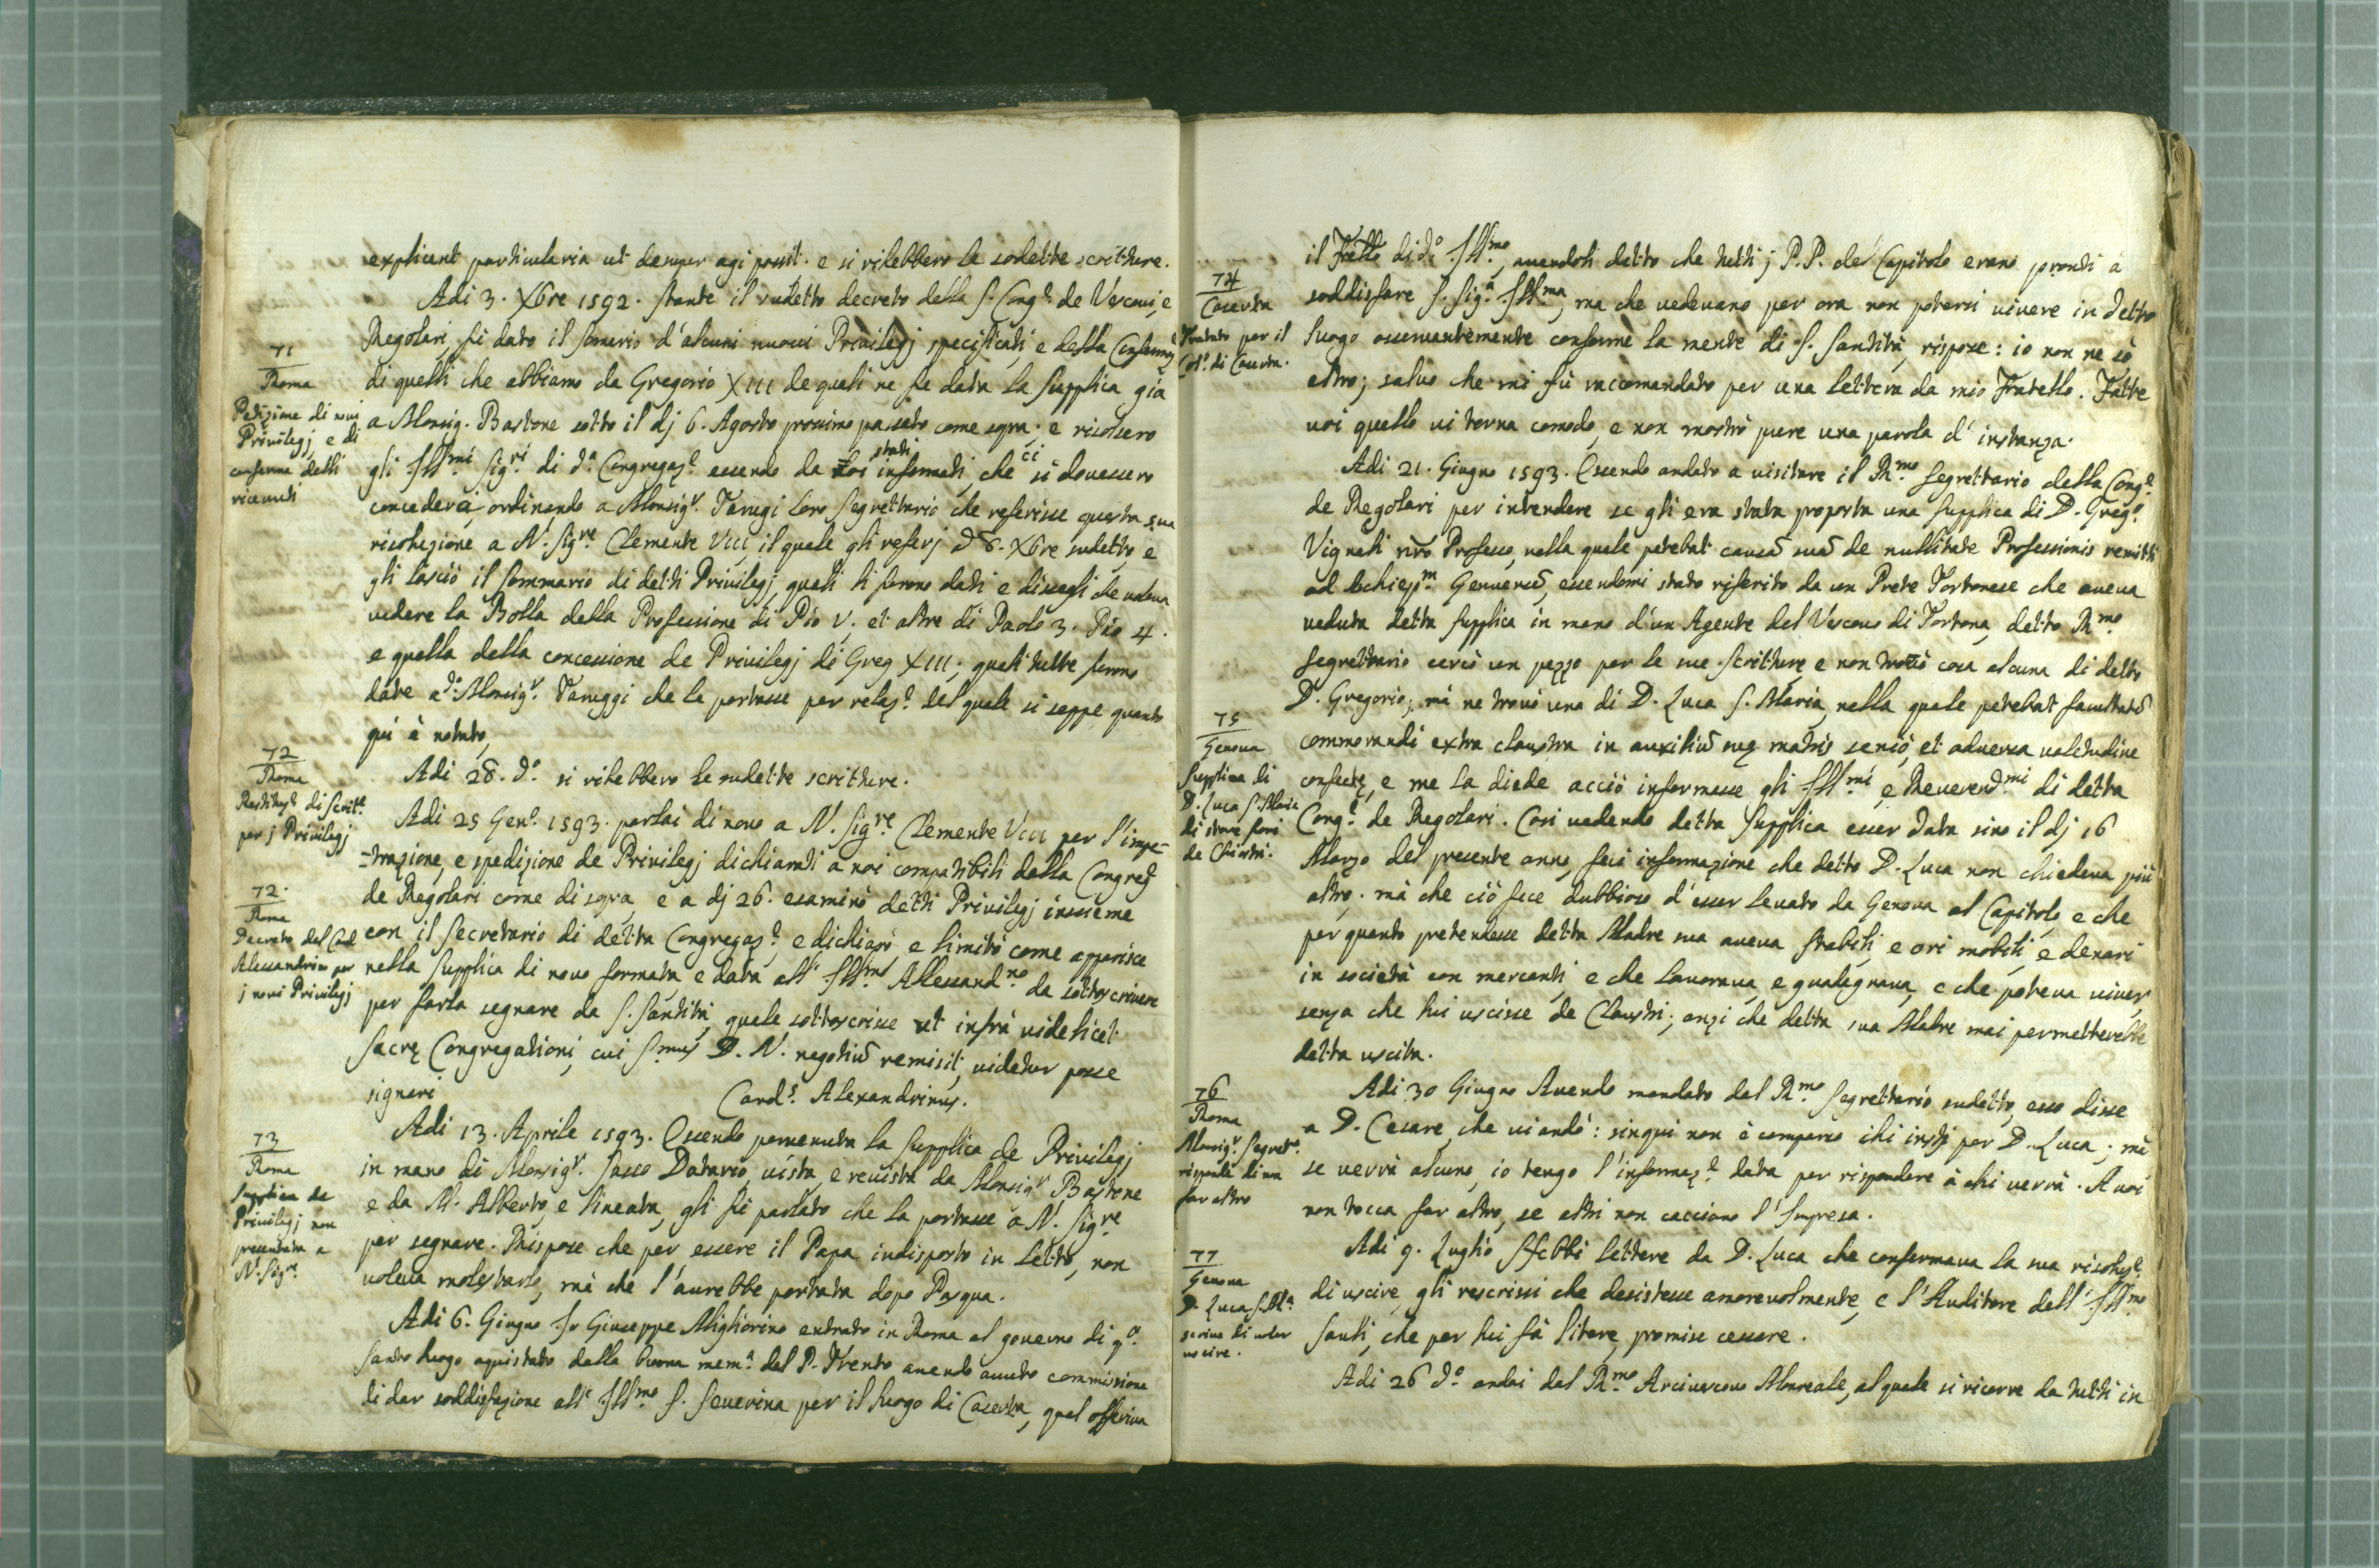 explicent particularia ut denuper agi possit. e si rihebbero le sodette scritture.
Adi 3. Xbre 1592. stante il sudetto decreto della S. Cong.e de Vescovi, e
71
Roma
Petizione di novi
Privilegj e di
conferma delli
ricevuti
Regolari, fù dato il somario d'alcuni nuovi Privilegj specificati, e della Conferma
di quelli che abbiamo da Gregorio XIII de quali ne fù data la supplica già
a Monsig. Bastone sotto il dj 6. Agosto prossimo passato come sopra; e risolsero
gli Ill.mi Sig.ri di d.a Congregaz.e essendo da noi stati informati, che ci si dovessero
concedere, ordinando a Monsig.r Tarugi loro Segrettario che referisse questa sua
risoluzione a N. Sig.re Clemente VIII, il quale gli referj d 8. Xbre sudetto, e
gli lasciò il Sommario di detti Privilegj, quali li furono dati e dissegli che voleva
vedere la Bolla della Professione di Pio V. et altre di Paolo 3. Pio 4.
e quella della concessione de Privilegj di Greg XIII; quali tutte furono
date a d.o Monsig.r Taruggi che le portasse per relaz.e del quale si seppe quanto
quì è notato,
72
Roma
Restituz.e di Scritt.e
per j Privilegj
Adi 28. d.o si rihebbero le sudette scritture.
Adi 25 Gen.o 1593. parlai di novo a N. Sig.re Clemente VIII per l'impe-
-trazione, e spedizione de Privilegj dichiarati a noi compatibili dalla Congreg.e
72.
Roma
Decreto del Card
Alessandrino per
j novi Privilegj
de Regolari come di sopra, e a dj 26. esaminò detti Privilegj insieme
con il Secretario di detta Congregaz.e e dichiarò, e limitò come apparisce
nella Supplica di novo formata e data all' Ill.mo Allessand.no da sottoscrivere
per farla segnare da S. Santità, quale sottoscrisse ut infrà videlicet
Sacrę Congregationi, cui S.mus D. N. negotiũ remisit, videtur posse
signari
Card.s Alexandrinus.
73
Roma
Supplica de
Privilegj non
presentata a
N. Sig.re
Adi 13. Aprile 1593. Essendo pervenuta la Supplica de Privilegj
in mano di Monsig.r Sasso Datario, vista, e revista da Monsig.r Bastone
e da M. Alberto, e lineata, gli fù parlato che la portasse a N. Sig.re
per segnare. Rispose che per essere il Papa indisposto in Letto, non
voleva molestarlo, mà che l'aurebbe portata dopo Pasqua.
Adi 6. Giugno Io Giuseppe Migliorino entrato in Roma al governo di q.o
Santo Luogo aquistato dalla buona mem.a del P. Trento avendo avuto commissione
di dar soddisfazione all' Ill.mo S. Severina per il Luogo di Caserta, qual offeriva
74
Caserta
Trattato per il
Col.o di Caserta.
il Fratello di d.o Ill.mo, avendoli detto che tutti j P.P. del Capitolo erano pronti a
soddisfare S. Sig.a Ill.ma, ma che vedevano per ora non potersi vivere in detto
Luogo osservantemente conforme la mente di S. Santità, rispose: io non ne sò
altro; salvo che mi fù raccomandato per una lettera da mio Fratello. Fatte
voi quello vi torna comodo, e non mostrò pure una parola d'instanza.
Adi 21. Giugno 1593. Essendo andato a visitare il R.mo Segrettario della Cong.e
de Regolari per intendere se gli era stata proposta una Supplica di D. Greg.o
Vignali nrõ Professo, nella quale petebat causã suã de nullitate Professionis remitti
ad Archiep.m Genuensẽ, essendomi stato riferito da un Prete Tortonese che aveva
veduta detta supplica in mano d'un Agente del Vescovo di Tortona, detto R.mo
Segrettario cercò un pezzo per le sue scritture, e non trovò cosa alcuna di detto
75
Genova
Supplica di
D. Luca S. Maria
di stare fuori
de Chiostri.
D. Gregorio; mà ne trovò una di D. Luca S. Maria, nella quale petebat facultatẽ
commorandi extra claustra in auxiliũ suę matris senio, et adversa valetudine
confectę, e me la diede acciò informasse gli Ill.mi, e Reverend.mi di detta
Cong.e de Regolari. Così vedendo detta Supplica esser data sino il dj 16
Marzo del presente anno, feci informazione che detto D. Luca non chiedeva più
altro. mà che ciò fece dubbioso d'esser levato da Genova al Capitolo, e che
per quanto pretendesse detta Madre sua aveva stabili, e ori mobili, e denari
in società con mercanti e che lavorava, e gualegnava, e che poteva viver
senza che lui uscisse de Claustri; anzi che detta sua Madre mai permetterebbe
detta uscita.
76
Roma
Monsig.r Segret.o
risponde di non
far altro
Adi 30 Giugno Avendo mandato dal R.mo Segrettario sudetto, esso disse
a D. Cesare, che vi andò: sinqui non è comparso chi insti per D. Luca; mà
se verrà alcuno, io tengo l'informaz.e data per rispondere à chi verrà. A voi
non tocca far altro, se altri non cacciono l'Impresa.
77
Genova
D. Luca S. M.a
scrive di voler
uscire.
Adi 9. Luglio Hebbi lettere da D. Luca che confermava la sua risoluz.e
di uscire, gli rescrissi che desistesse amorevolmente, e l'Auditore dell' Ill.mo
Sauli, che per lui fà litere, promise cessare.
Adi 26 d.o andai dal R.mo Arcivescovo Monreale, al quale si ricorre da tutti in